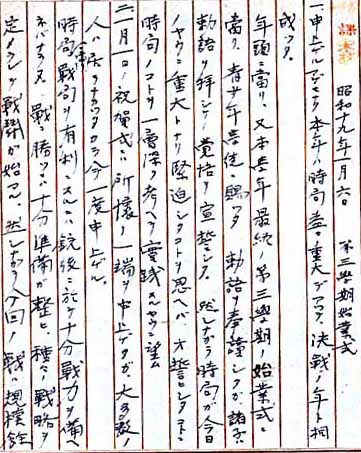 昭和十九年一月六日　第三學期始業式
一申上ゲルマデモナク本年ハ時局益々重大デアツテ決戰ノ年ト相
成ツタ。
年頭ニ當リ又本學年最終ノ第三學期ノ始業式ニ
當リ青少年學徒ニ賜ハツタ勅語ヲ奉讀シタガ諸子ハ
勅語ヲ拜シテノ覺悟ヲ宣誓シタ。然シナガラ時局ガ今日
ノヤウニ重大トナリ緊迫シタコトヲ思ヘバ、オ誓ヒシタコト
時局ノコトヲ一層深ク考ヘテ實踐スルヤウニ望ム
二一月一日ノ祝賀式ニ所懷ノ一端ヲ申上ゲタガ、大多數ノ
人ハ居ラナカツタカラ今一度申上ゲル。
時局戰局ヲ有利ニスルニハ銃後ニ於テ十分戰力ヲ備ヘ
ネバナラヌ。戰ニ勝ツニハ十分準備ガ整ヒ、種々戰略ヲ
定メテ戰鬪ガ始マル、然シナガラ今回ノ戰ハ規模餘